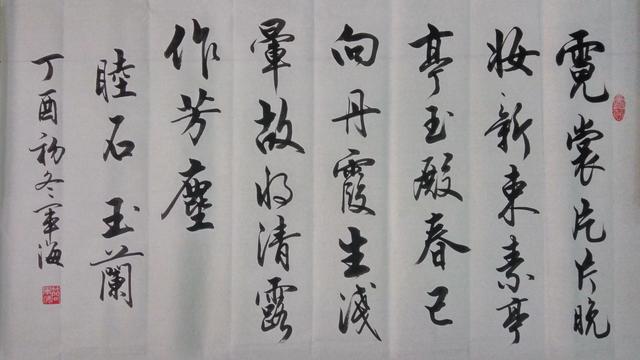 霓裳片片晚
妆新束素亭
亭玉殿春已
向丹霞生浅
晕故将清露
作芳尘
睦石玉兰
丁酉初冬军海